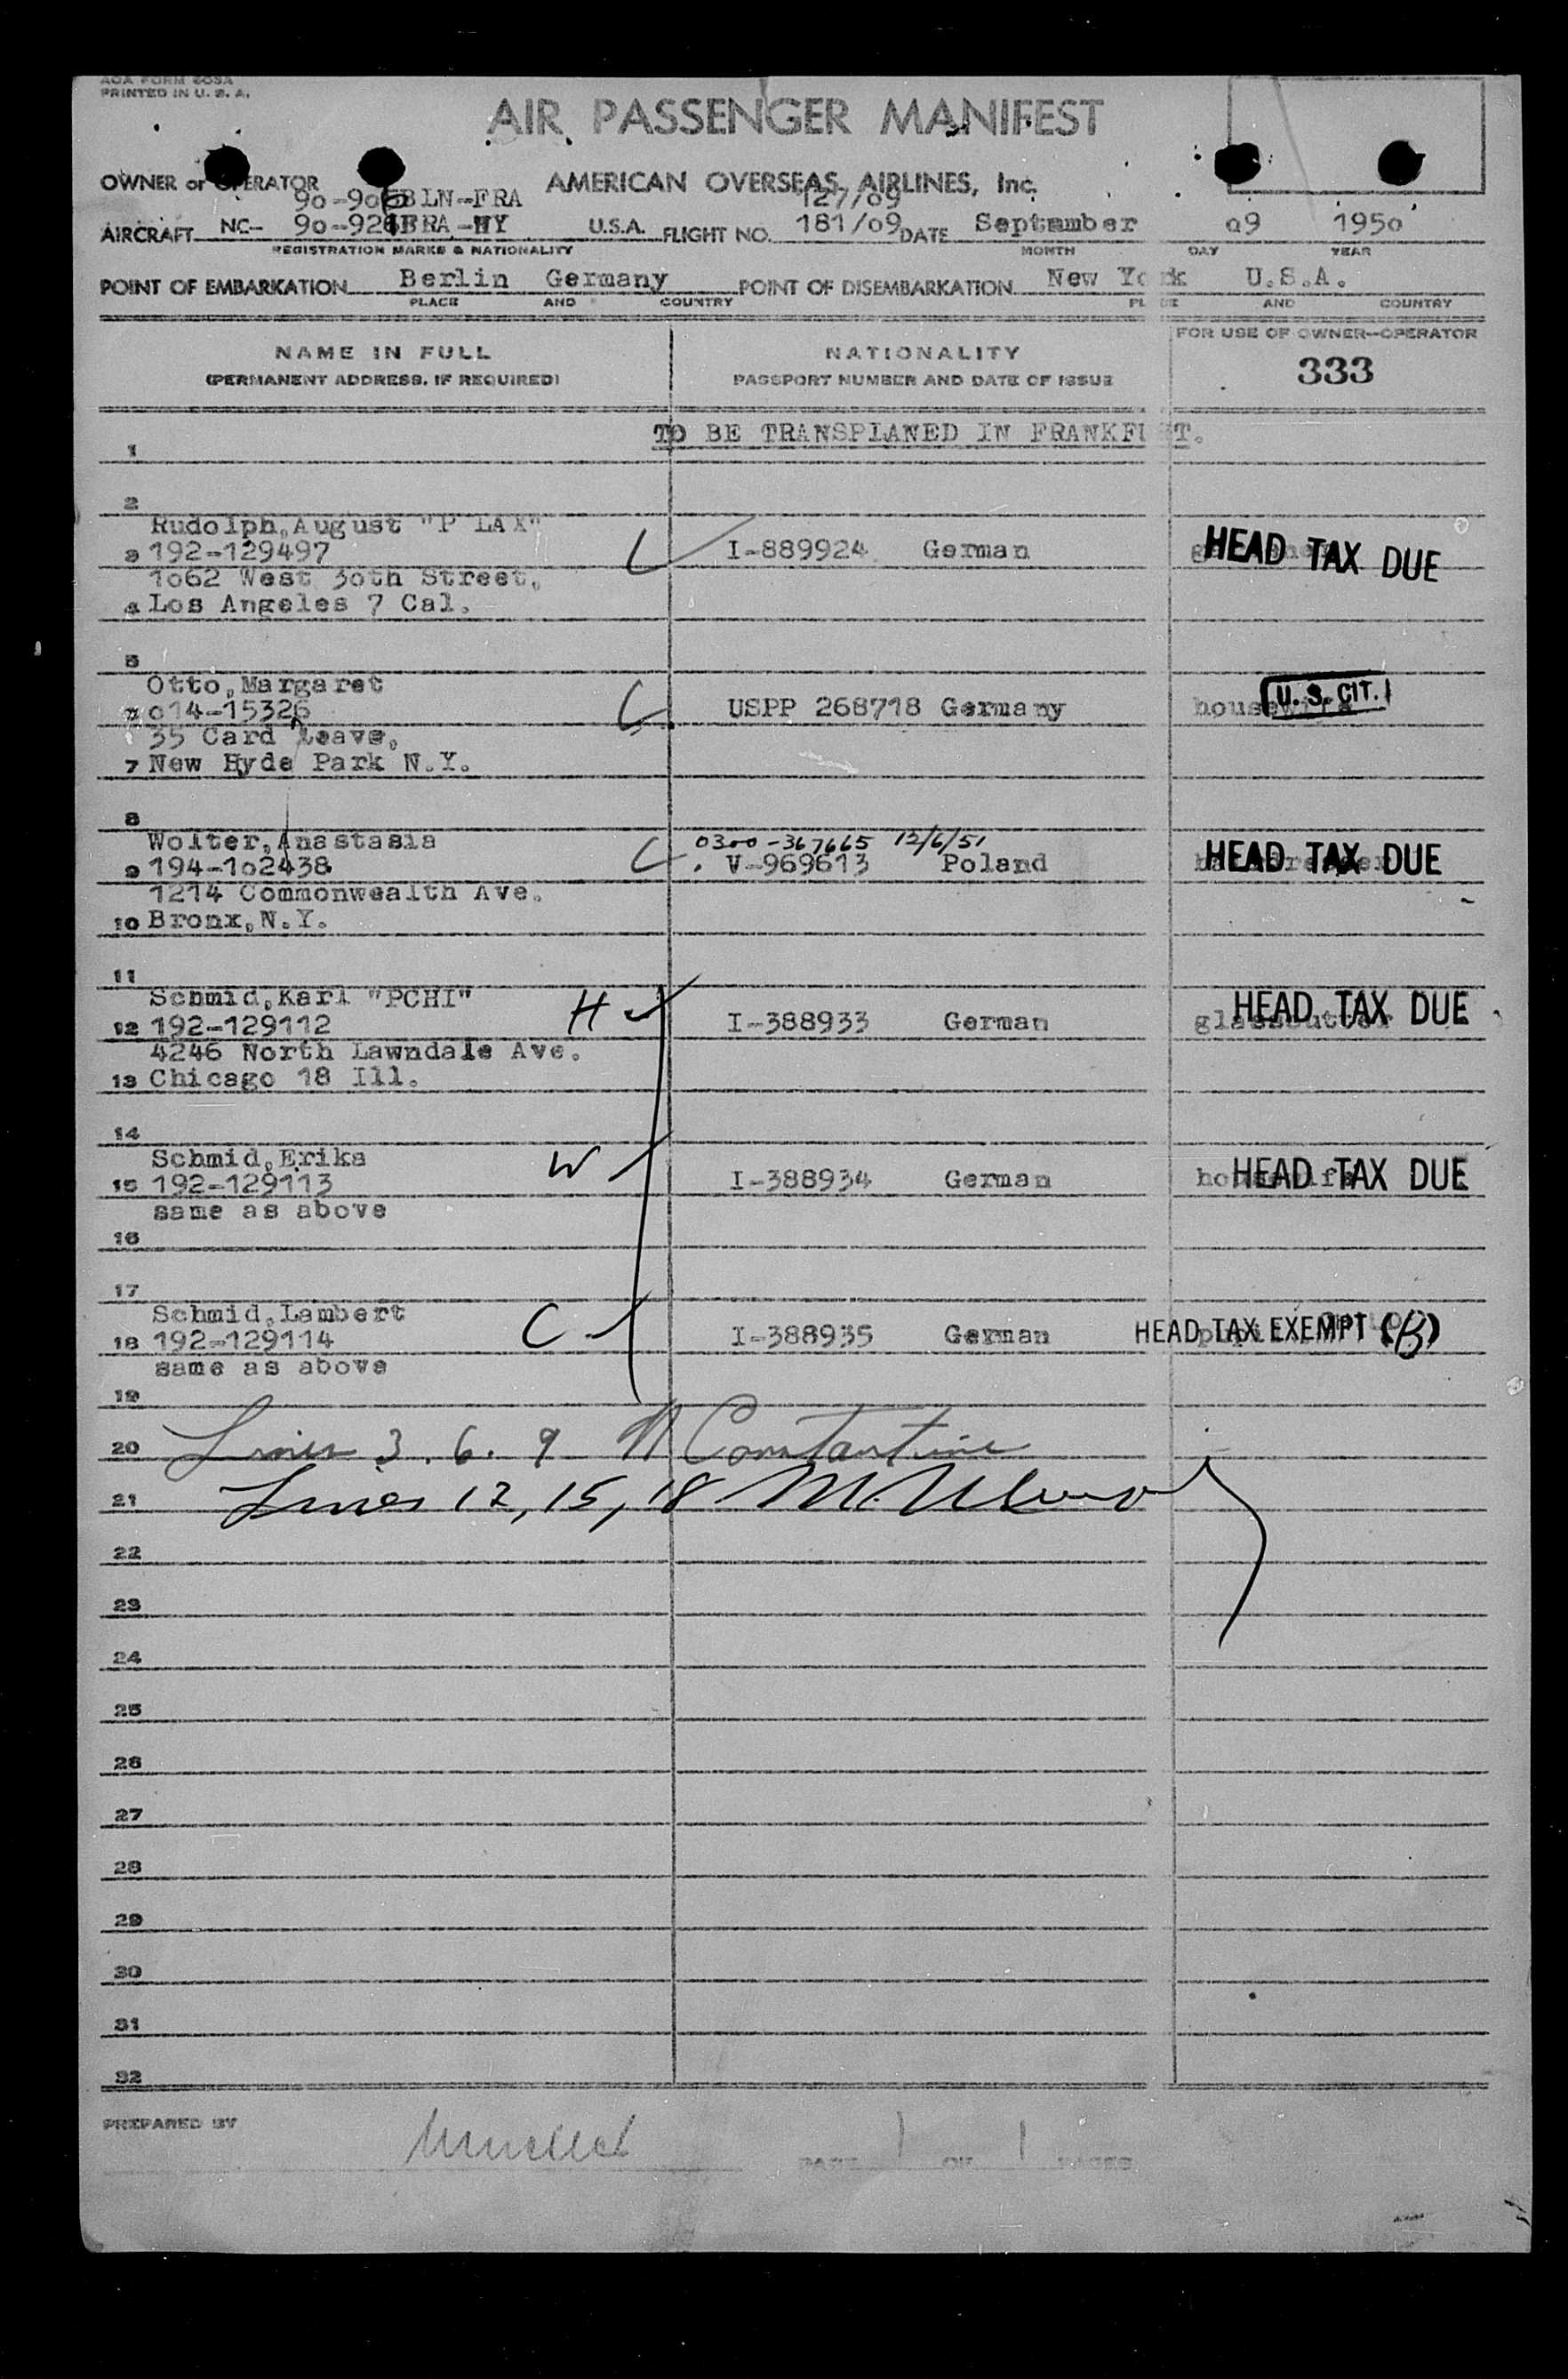 AOA FORM 805A
PRINTED IN U. S. A.
AIR PASSENGER MANIFEST
OWNER or OPERATOR AMERICAN OVERSEAS AIRLINES, Inc.
BLN-FRA 127/09
AIRCRAFT NC- FRA-NY U.S.A. FLIGHT NO. 181/09 DATE September 09 1950
REGISTRATION MARKS & NATIONALITY MONTH DAY YEAR
POINT OF EMBARKATION Berlin Germany POINT OF DISEMBARKATION New York U.S.A.
PLACE AND COUNTRY PLACE AND COUNTRY
FOR USE OF OWNER-OPERATOR
NAME IN FULL NATIONALITY
(PERMANENT ADDRESS, IF REQUIRED) PASSPORT NUMBER AND DATE OF ISSUE 333
1 TO BE TRANSPLANED IN FRANKFURT.
2
Rudolph,August "P LAX"
3 192-129497 I-889924 German HEAD TAX DUE
1062 West 30th Street,
4 Los Angeles 7 Cal.
5
Otto,Margaret
014-15326 C USPP 268718 Germany housewife U. S. CIT.
35 Card Leave,
7 New Hyde Park N.Y.
8
Wolter,Anastasia 0300-367665 12/6/51
9 194-102438 C V-969613 Poland hairdresser HEAD TAX DUE
1214 Commonwealth Ave.
10 Bronx,N.Y.
11
Schmid,Karl "PCHI" H
12 192-129112 I-388933 German glasscutter HEAD TAX DUE
4246 North Lawndale Ave.
13 Chicago 18 Ill.
14
Schmid,Erika W
15 192-129113 I-388934 German housewife HEAD TAX DUE
same as above
16
17
Schmid,Lambert C
18 192-129114 I-388935 German HEAD TAX EXEMPT (B)
same as above
19
20 Lines 3. 6. 9 Constantine
21 Lines 12, 15, 18
22
23
24
25
26
27
28
29
30
31
32
PREPARED BY
PAGE 1 OF 1 PAGES